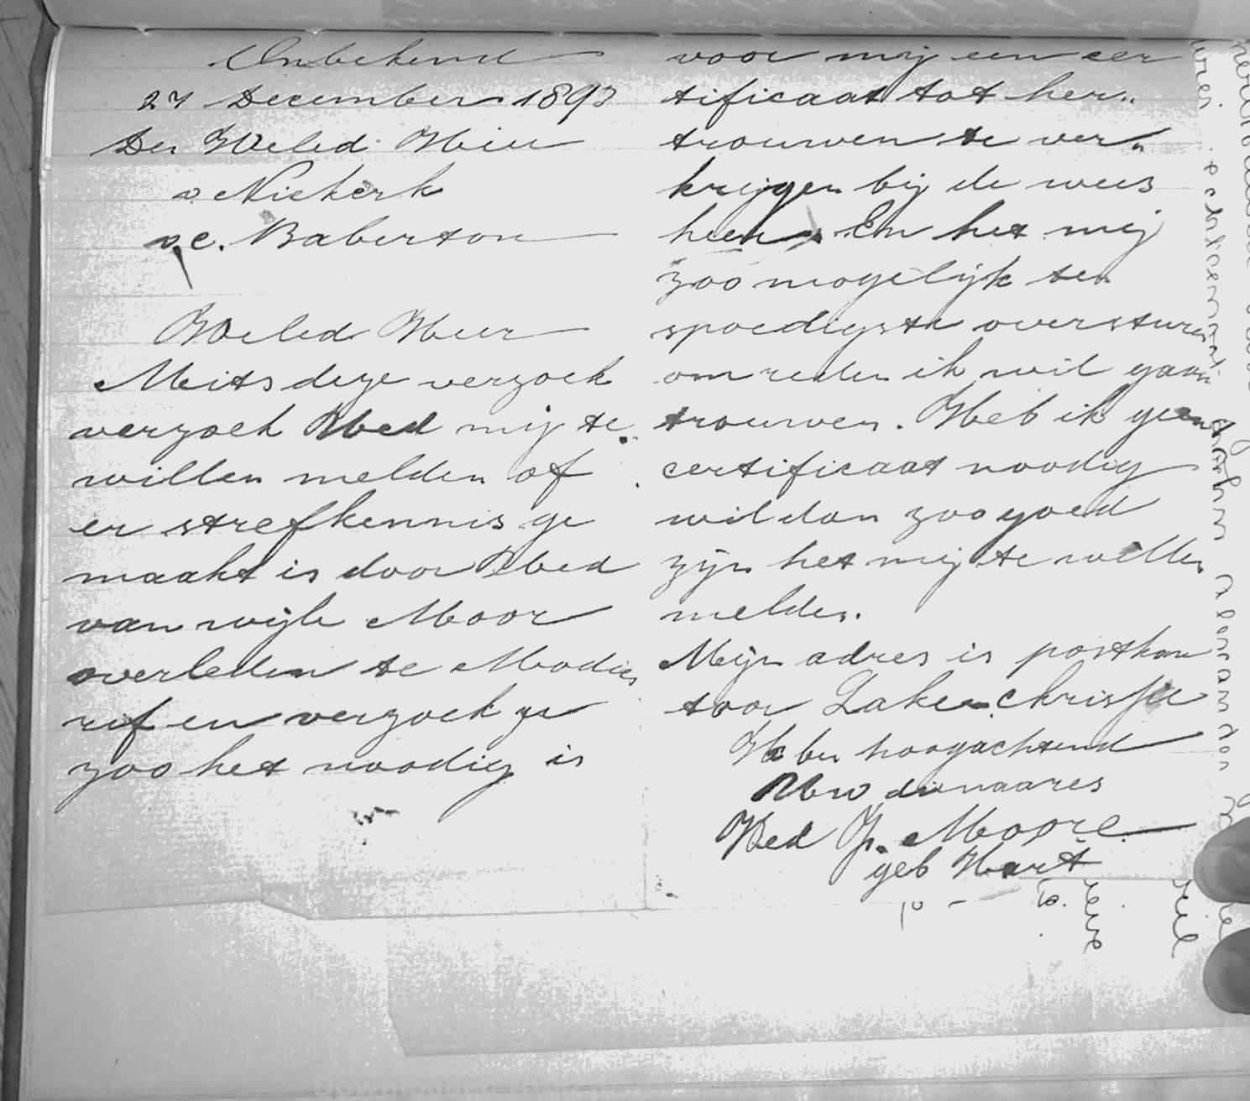 Onbekend
27 December 1893
Den Weled Heer
v. Niekerk
v.c. Baberton
Weled Heer
Meits deze verzoek
verzoek Uwed mij te
willen melden of
er strefkennis ge
maakt is door Uwed
van wijle Moor
overleden te Modde
rif en verzoek ze
zoo het noodig is
voor mij een cer
tificaat tot her„
trouwen te ver„
krijgen bij de wees
heer, En het mij
zoo mogelijk ten
spoedigste oversturen
om reden ik wil gaan
trouwen. Heb ik geen
certificaat noodig
wil dan zoo goed
zijn het mij te willen
melden.
Mijn adres is postkan
toor Lake Chrisjie
Ik ben hoogachtend
Uw dienaares
Wed J. Moore
geb Hart